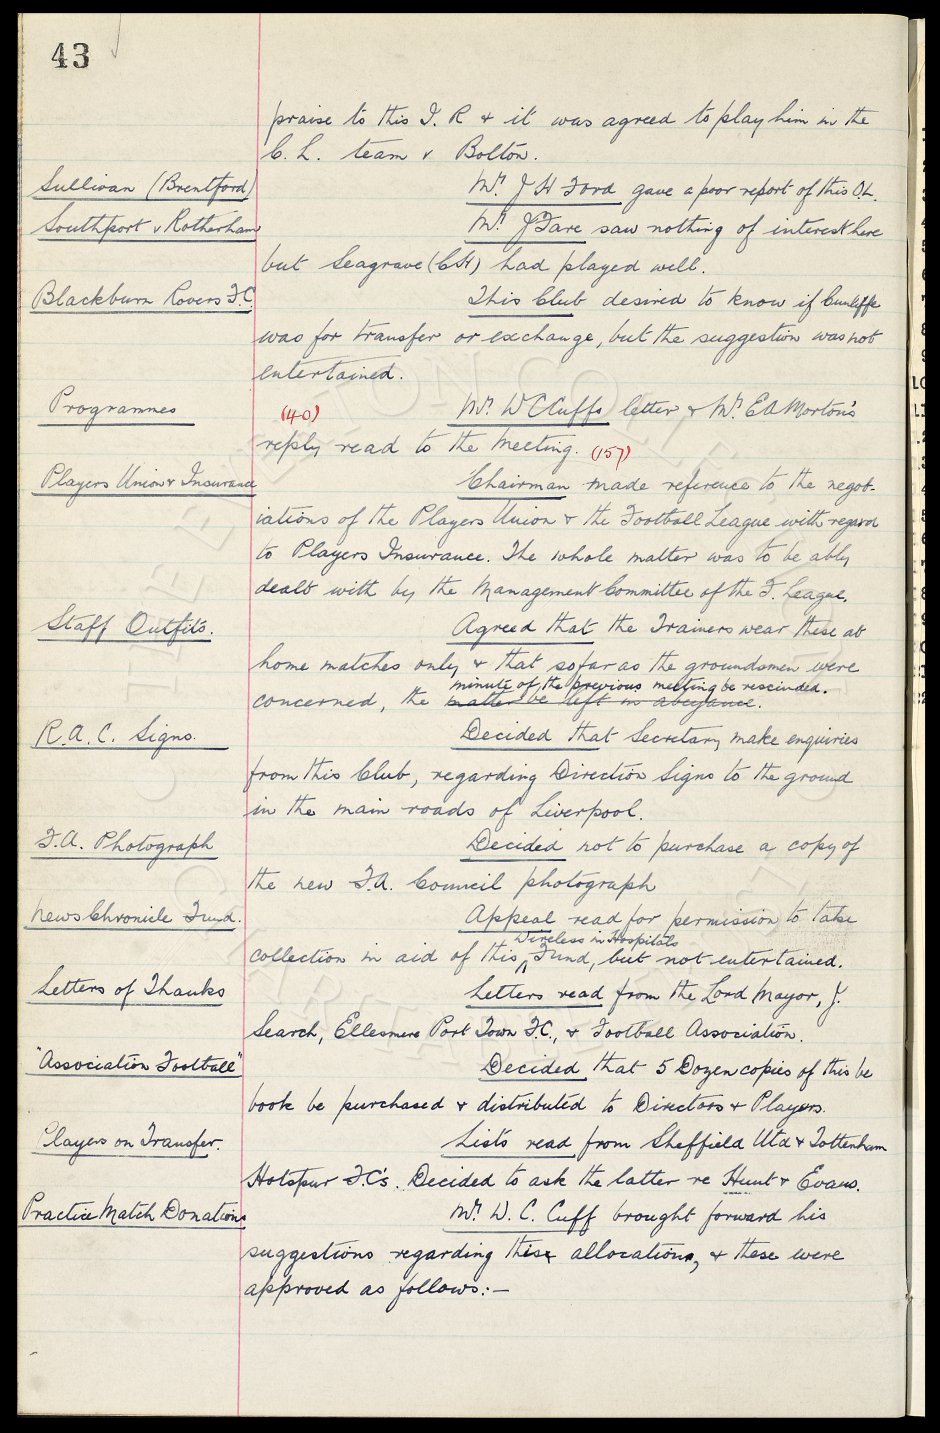 43
praise to this I. R & it was agreed to play him in the
C. L. team v Bolton.
Sullivan (Brentford) Mr. J H Ford gave a poor report of this O.L.
Southport v Rotherham Mr. J Fare saw nothing of interest here
but Seagrave (CH) had played well.
Blackburn Rovers F.C. This Club desired to know if Cunliffe
was for transfer or exchange, but the suggestion was not
entertained.
Programmes (40) Mr. W C Cuffs letter & Mr. E A Morton's
reply read to the Meeting. (157)
Players Union & Insurance Chairman made reference to the negot-
iations of the Players Union & the Football League with regard
to Players Insurance. The whole matter was to be ably
dealt with by the Management Committee of the F. League.
Staff Outfits. Agreed that the Trainers wear these at
home matches only & that so far as the groundsmen were
minute of the previous meeting be rescinded.
concerned, the matter be left in abeyance.
R.A.C. Signs. Decided that Secretary make enquiries
from this Club, regarding Direction Signs to the ground
in the main roads of Liverpool.
F.A. Photograph Decided not to purchase a copy of
the new F.A. Council photograph
News Chronicle Fund. Appeal read for permission to take
Wireless in Hospitals
collection in aid of this Fund, but not entertained.
Letters of Thanks Letters read from the Lord Mayor, J.
Search, Ellesmere Port Town F.C., & Football Association.
"Association Football" Decided that 5 Dozen copies of this be
book be purchased & distributed to Directors & Players.
Players on Transfer. Lists read from Sheffield Utd & Tottenham
Hotspur F.C's. Decided to ask the latter re Hunt & Evans.
Practice Match Donations Mr. W. C. Cuff brought forward his
suggestions regarding these allocations, & these were
approved as follows:—
THE EVERTON COLLECTION CHARITABLE TRUST